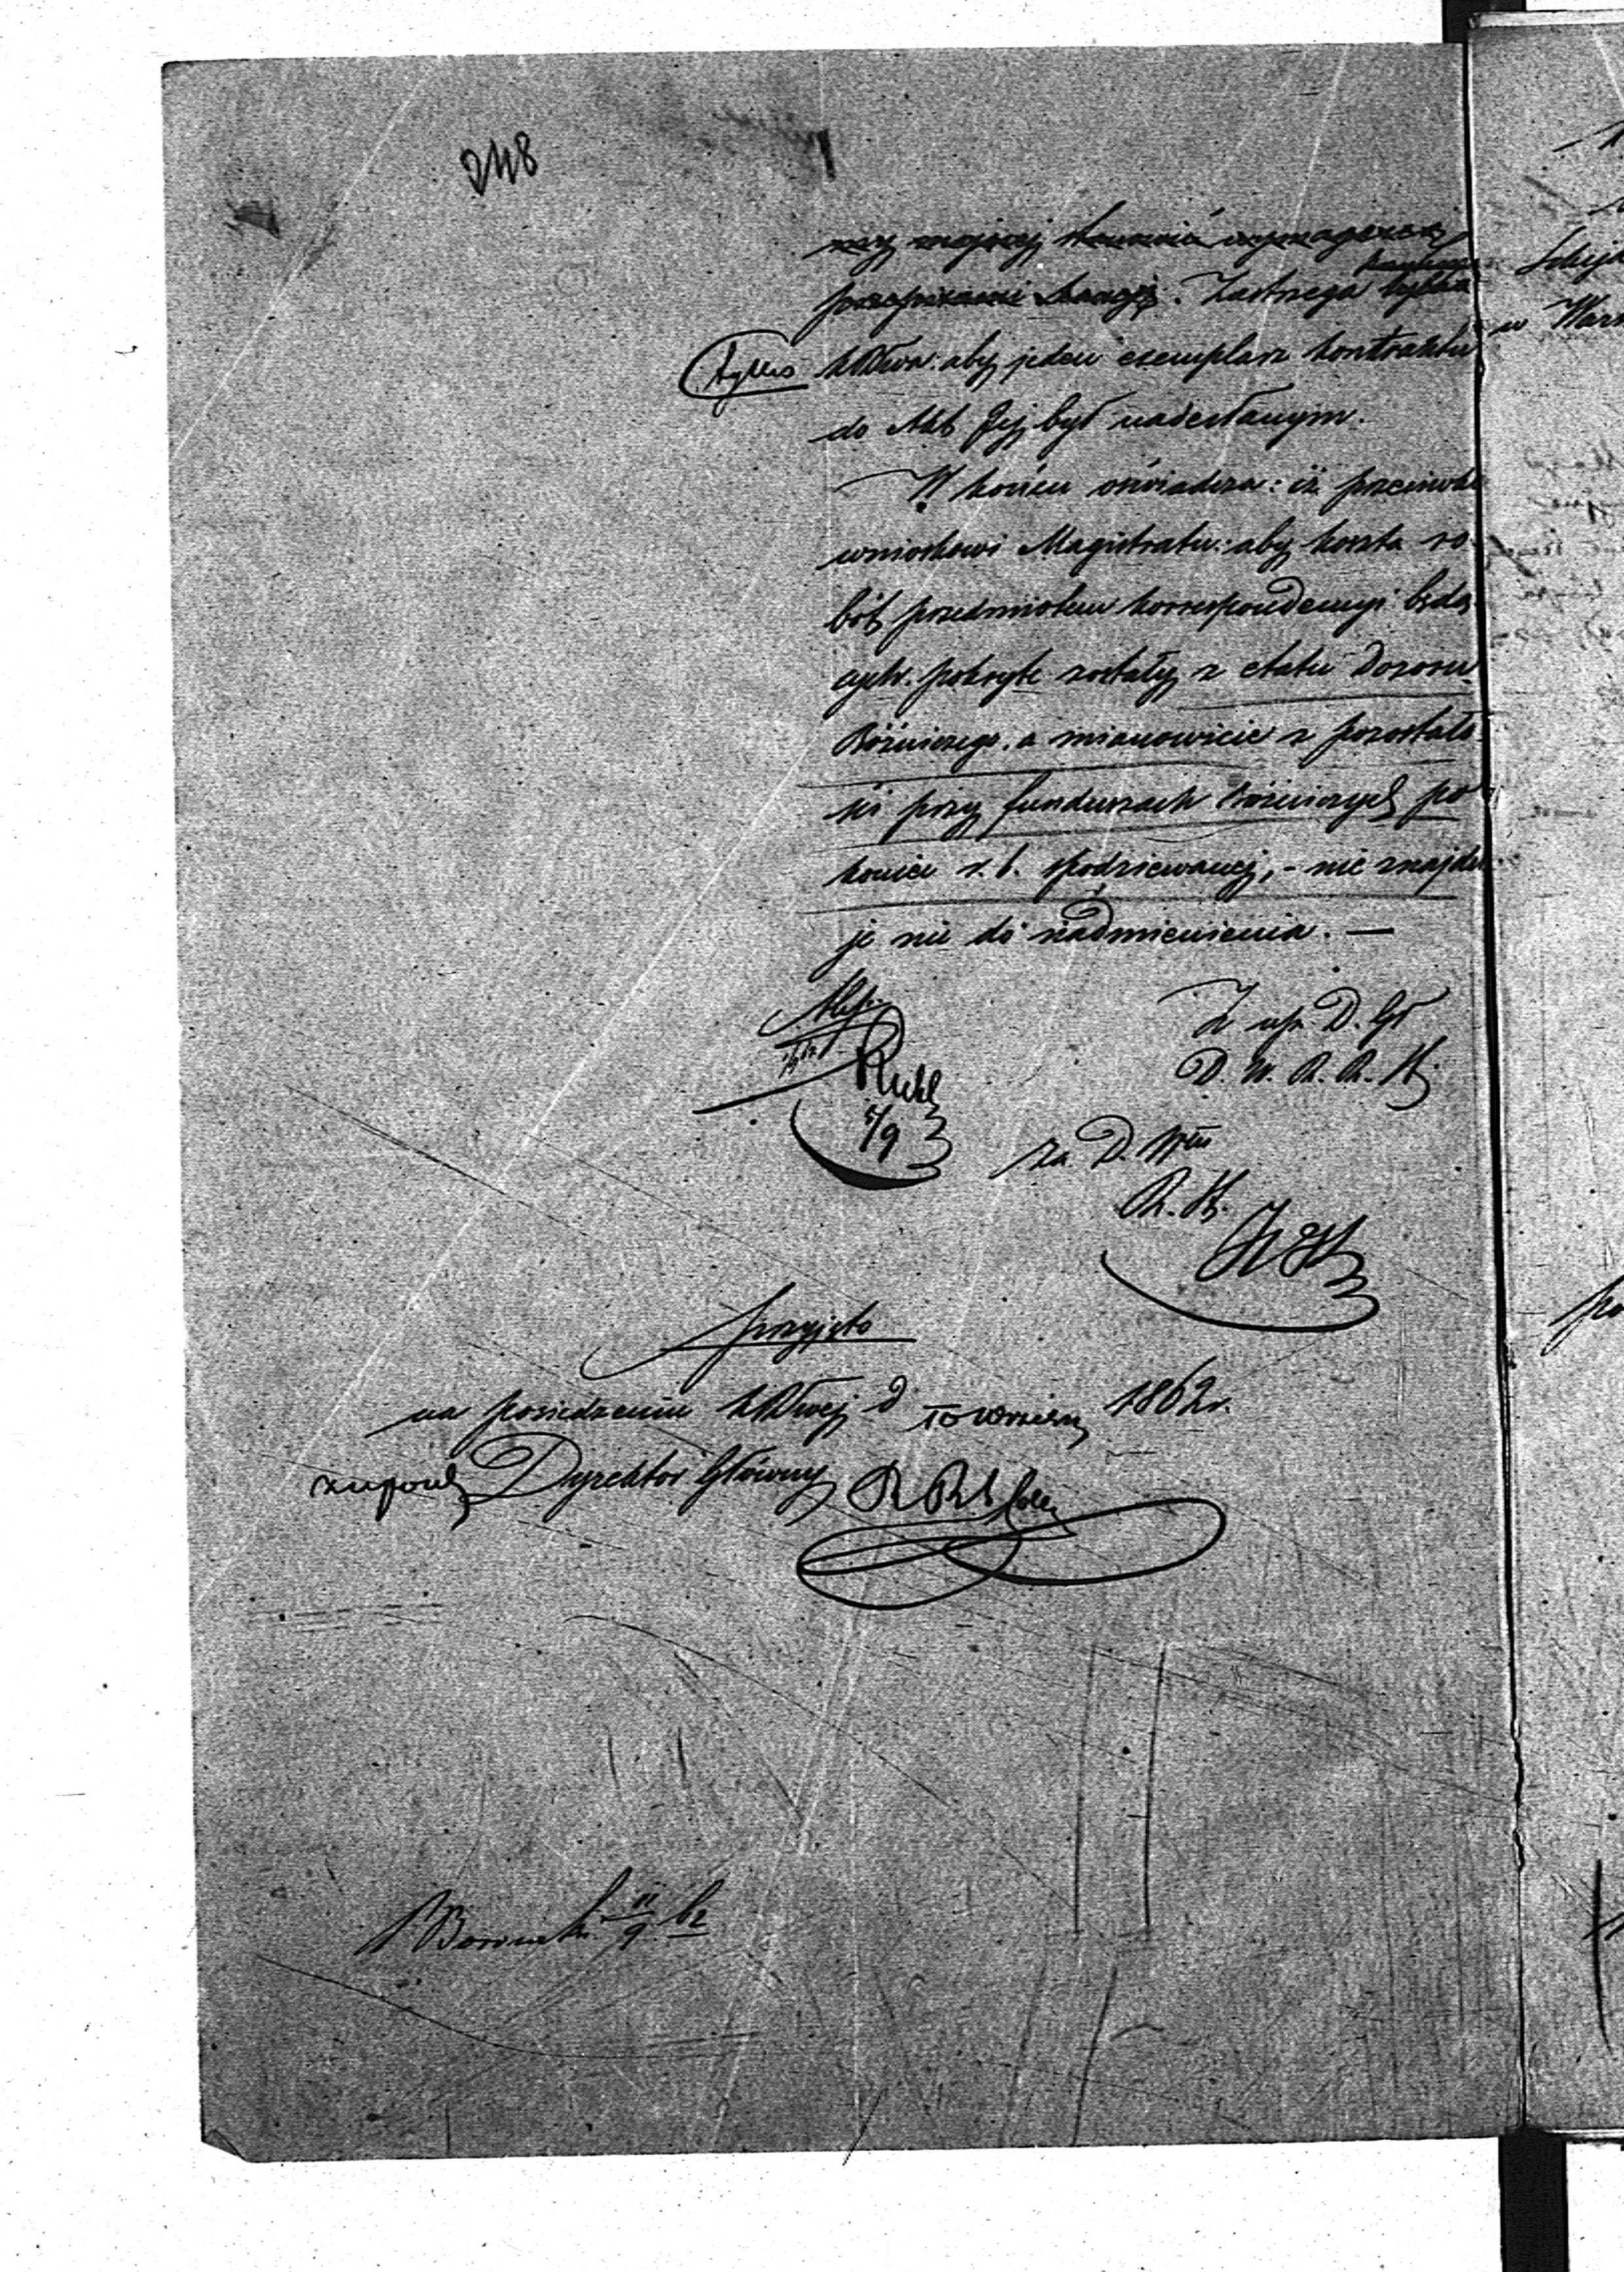 248
przepisami kaucji. Zastrzega
tylko KRSwa. aby jeden exemplarz kontraktu
do Akt Jej był nadesłanym.
W końcu oświadcza: iż przeciwko
wnioskowi Magistratu: aby koszta ro-
bót przedmiotem korrespondencyi będą-
cych. pokryte zostały z etatu Dozoru
Bóżniczego. a mianowicie z pozostało-
ści przy funduszach bóżniczych po
końcu r. b. spodziewanej, – nic znajdu-
je nic do nadmienienia. —
Z up. D. Gł
D. W. R. R. St.
za D. Włu
R. St.
5/9
przyjęto
na posiedzeniu KRSwej d 10 Wrześn 1862 r.
z upow Dyrektor Główny
11/9 62